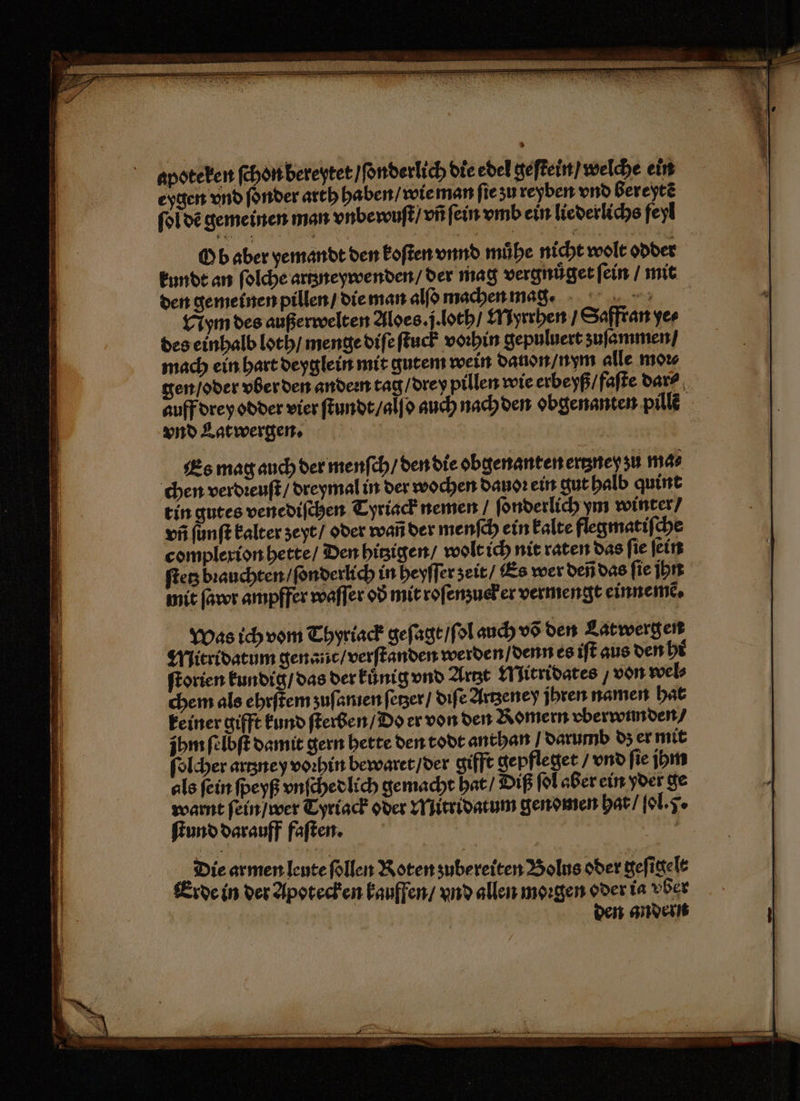 apoteken ſchon bereytet / ſonderlich die edel geſtein / welche ein
eygen vnd ſonder arth haben / wie man ſie zu reyben vnd bereytẽ
ſol dẽ gemeinen man vnbewuſt / vñ ſein vmb ein liederlichs feyl
Ob aber yemandt den koſten vnnd muͤhe nicht wolt odder
kundt an ſolche artzney wenden / der mag vergnuͤget ſein / mit
den gemeinen pillen / die man alſo machen mag.
Nym des außerwelten Aloes. j. loth / Myrrhen / Saffran ye⸗
des einhalb loth / menge diſe ſtuck voꝛhin gepuluert zuſammen /
mach ein hart deyglein mit gutem wein dauon / nym alle moꝛ⸗
gen / oder vber den andeꝛn tag / drey pillen wie erbeyß / faſte dar⸗
auff drey odder vier ſtundt / alſo auch nach den obgenanten pillẽ
vnd Latwergen.
Es mag auch der menſch / den die obgenanten ertzney zu ma⸗
chen verdꝛeuſt / dreymal in der wochen dauoꝛ ein gut halb quint
tin gutes venediſchen Tyriack nemen / ſonderlich ym winter /
vñ ſunſt kalter zeyt / oder wañ der menſch ein kalte flegmatiſche
complexion hette / Den hitzigen / wolt ich nit raten das ſie ſein
ſtetz bꝛauchten / ſonderlich in heyſſer zeit / Es wer deñ das ſie jhn
mit ſawr ampffer waſſer od̕ mit roſenzucker vermengt einnemẽ.
Was ich vom Thyriack geſagt / ſol auch võ den Latwergen
Mitridatum genant / verſtanden werden / denn es iſt aus den hi
ſtorien kundig / das der kuͤnig vnd Artzt Mitridates / von wel⸗
chem als ehrſtem zuſamen ſetzer / diſe Artzeney jhren namen hat
keiner gifft kund ſterben / Do er von den Romern vberwunden /
jhm ſelbſt damit gern hette den todt anthan / darumb dz er mit
ſolcher artzney voꝛhin bewaret / der gifft gepfleget / vnd ſie jhm
als ſein ſpeyß vnſchedlich gemacht hat / Diß ſol aber ein yder ge
warnt ſein / wer Tyriack oder Mitridatum genomen hat / ſol.
ſtund darauff faſten.
Die armen leute ſollen Roten zubereiten Bolus oder geſigelt
Erde in der Apotecken kauffen / vnd allen moꝛgen oder ia vber
den andern